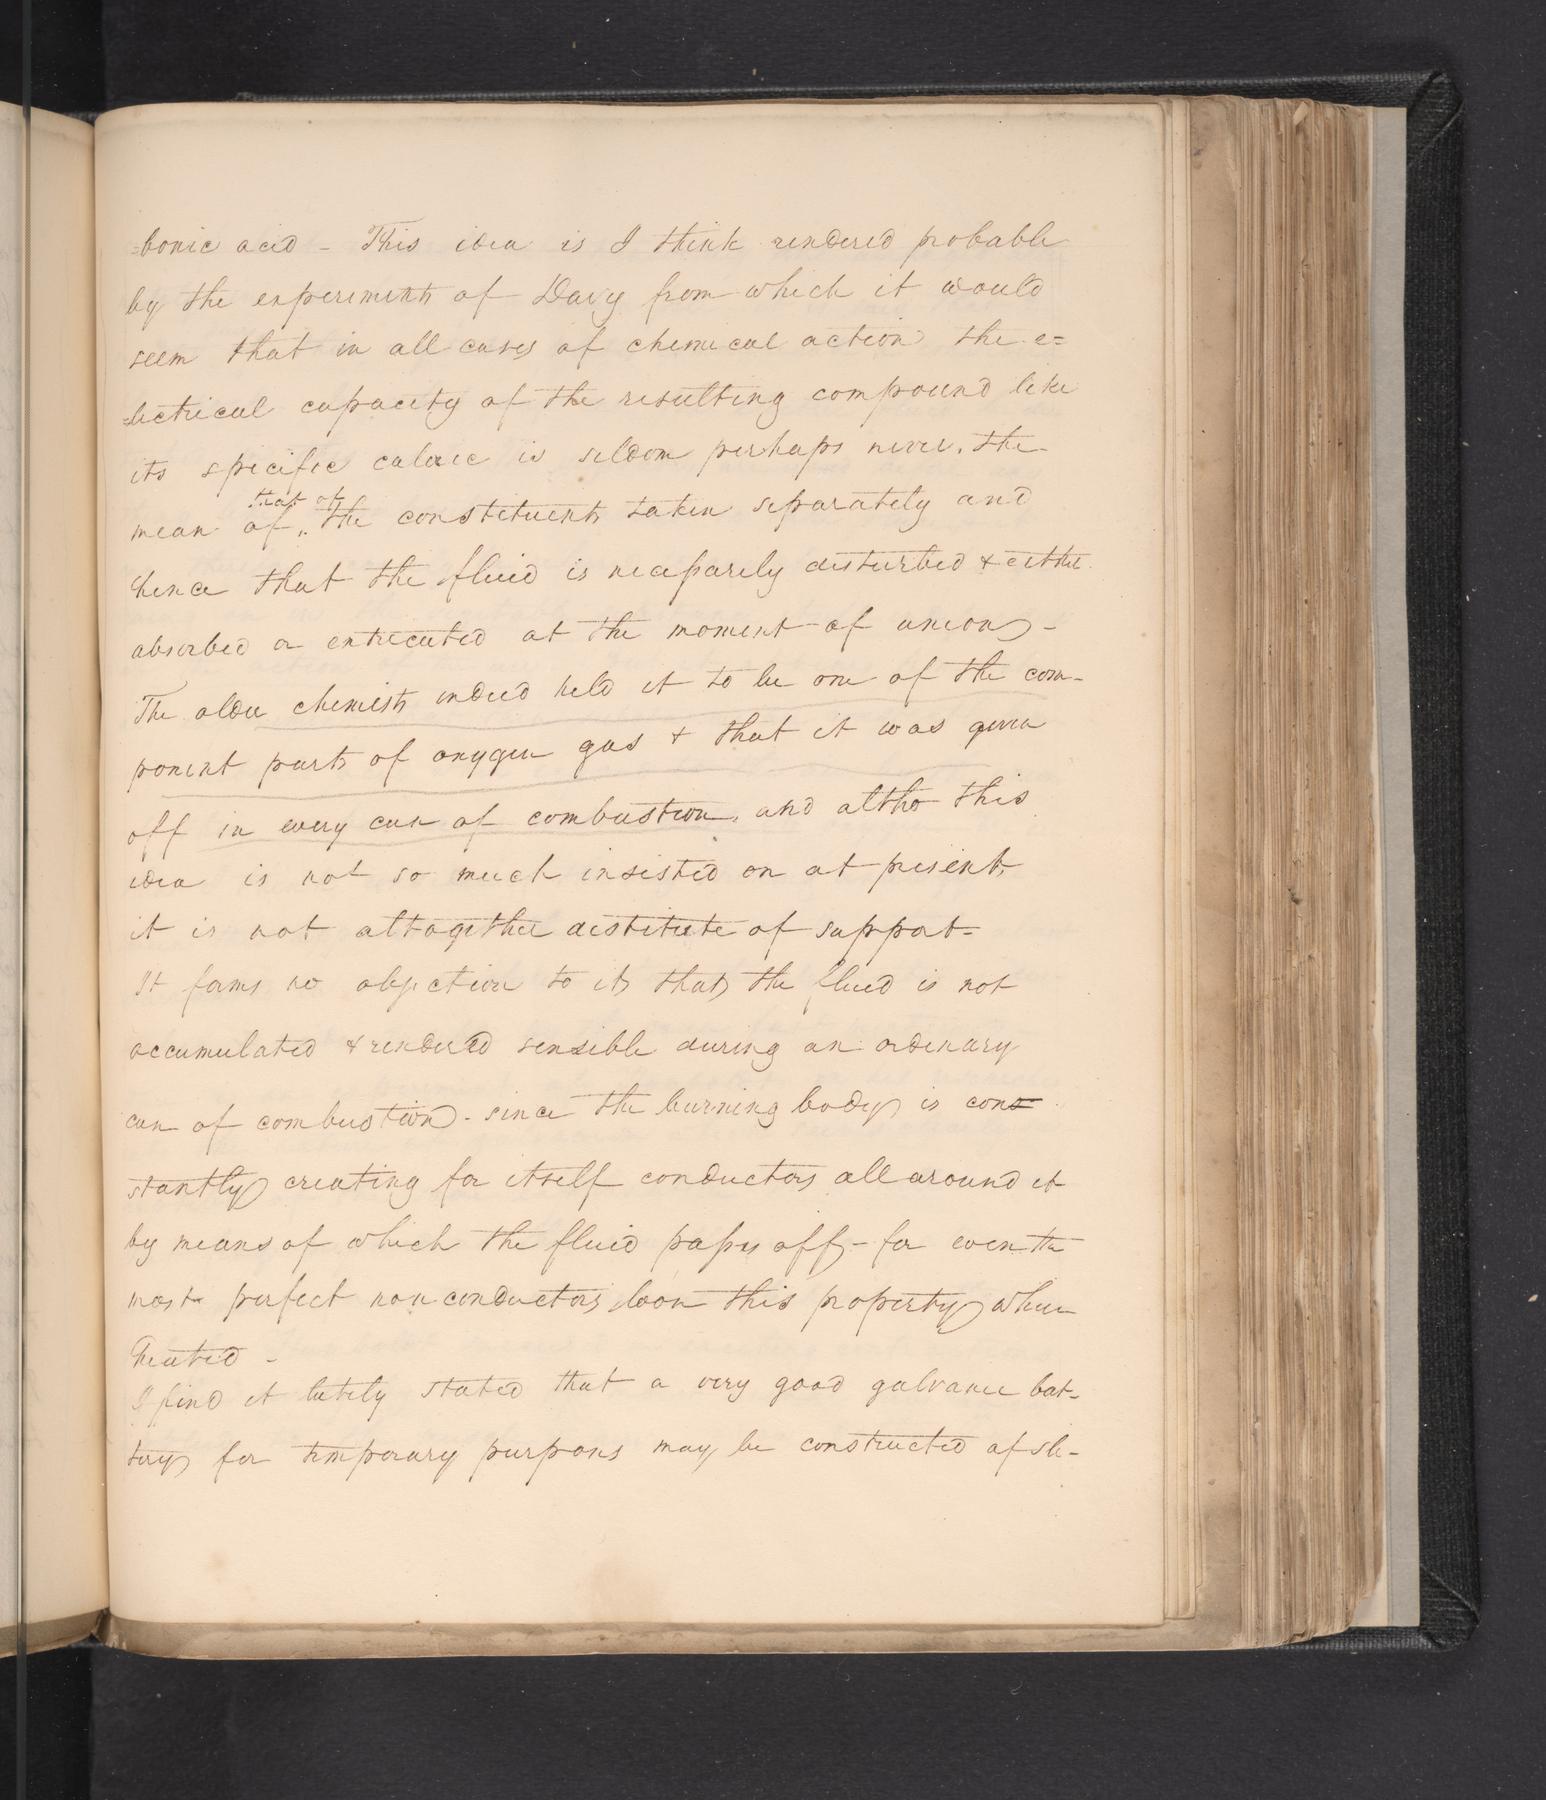 =bonic acid - This idea is I think rendered probable
by the experiments of Davy from which it would
seem that in all cases of chemical action the e=
=lectrical capacity of the resulting compound like
its specific caloric is seldom perhaps never, the
that of
mean of the constituents taken separately and
hence that the fluid is necessarily disturbed & either
absorbed or extricated at the moment of union -
The older chemists indeed held it to be one of the com-
ponent parts of oxygen gas & that it was given
off in every case of combustion, and altho this
idea is not so much insisted on at present,
it is not altogether destitute of support-
It forms no objection to it, that the fluid is not
accumulated & rendered sensible during an ordinary
case of combustion - since the burning body is con=
stantly creating for itself conductors all around it
by means of which the fluid passes off - for even the
most perfect non conductors loose this property when
heated -
I find it lately stated that a very good galvanic bat-
tery for temporary purposes may be constructed of sli-